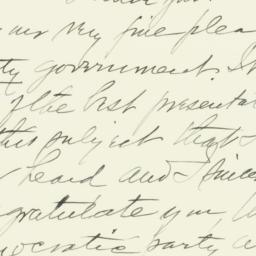 our very fine plea
ty government. It
of the best presentat
this subject that I
heard and I since
gratulate you, W
ocratic party a